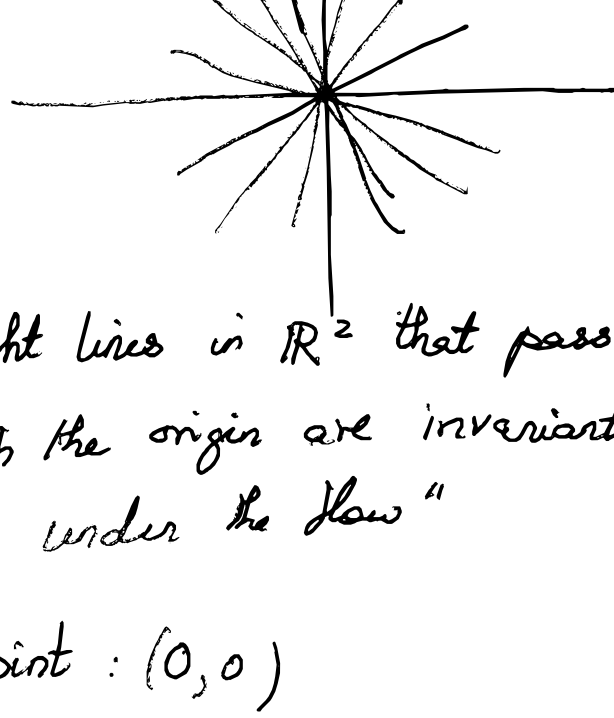 ht lines in ℝ² that pass
h the origin are invariant
under the flow"
oint : (0,0)